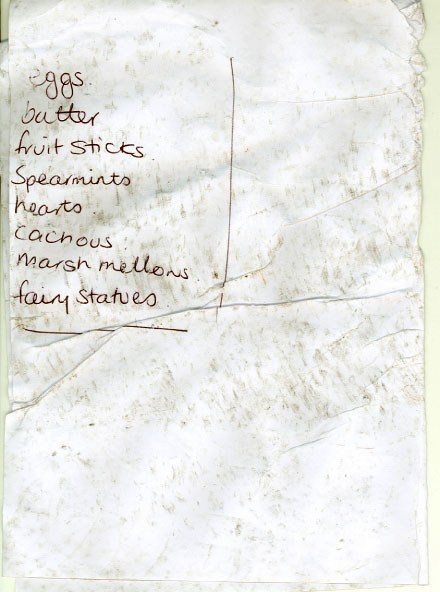 eggs
butter
fruit sticks
Spearmints
hearts
cachous
marsh mellows
fairy statues